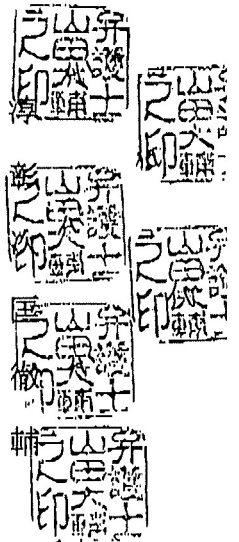 弁護士
山田大輔
之印
弁護士
山田大輔
之印
淳
弁護士
山田大輔
之印
彰
弁護士
山田大輔
之印
匡
弁護士
山田大輔
之印
徹
弁護士
山田大輔
之印
輔